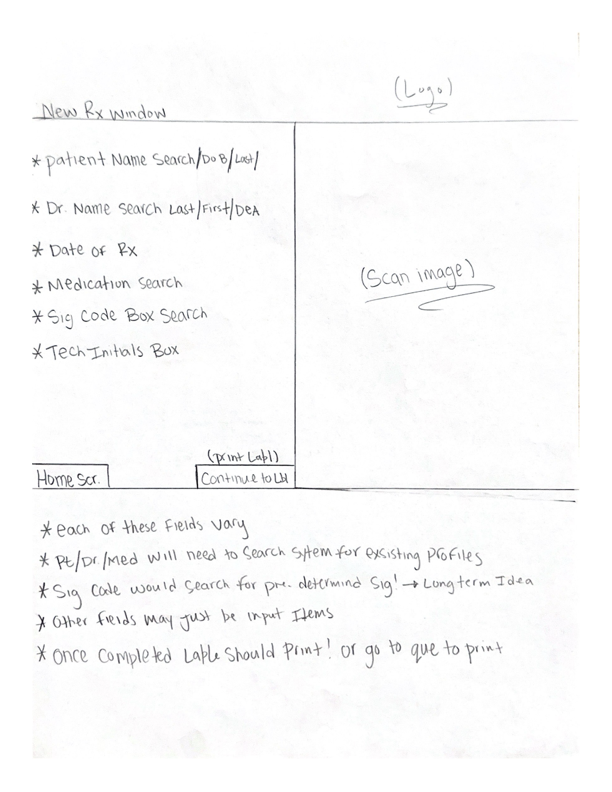 (Logo)
New Rx Window
* Patient Name Search/DoB/Last/
* Dr. Name Search Last/First/DEA
* Date of Rx
* Medication Search
* Sig Code Box Search
* Tech Initials Box
(Scan image)
(print Labl)
Home Scr.
Continue to Lbl
* each of these Fields Vary
* Pt/Dr./Med Will need to Search Sytem for exsisting Profiles
* Sig Code would Search for pre-determind Sig! → Long term Idea
* Other fields may just be input Items
* Once Completed Lable Should Print! or go to que to print